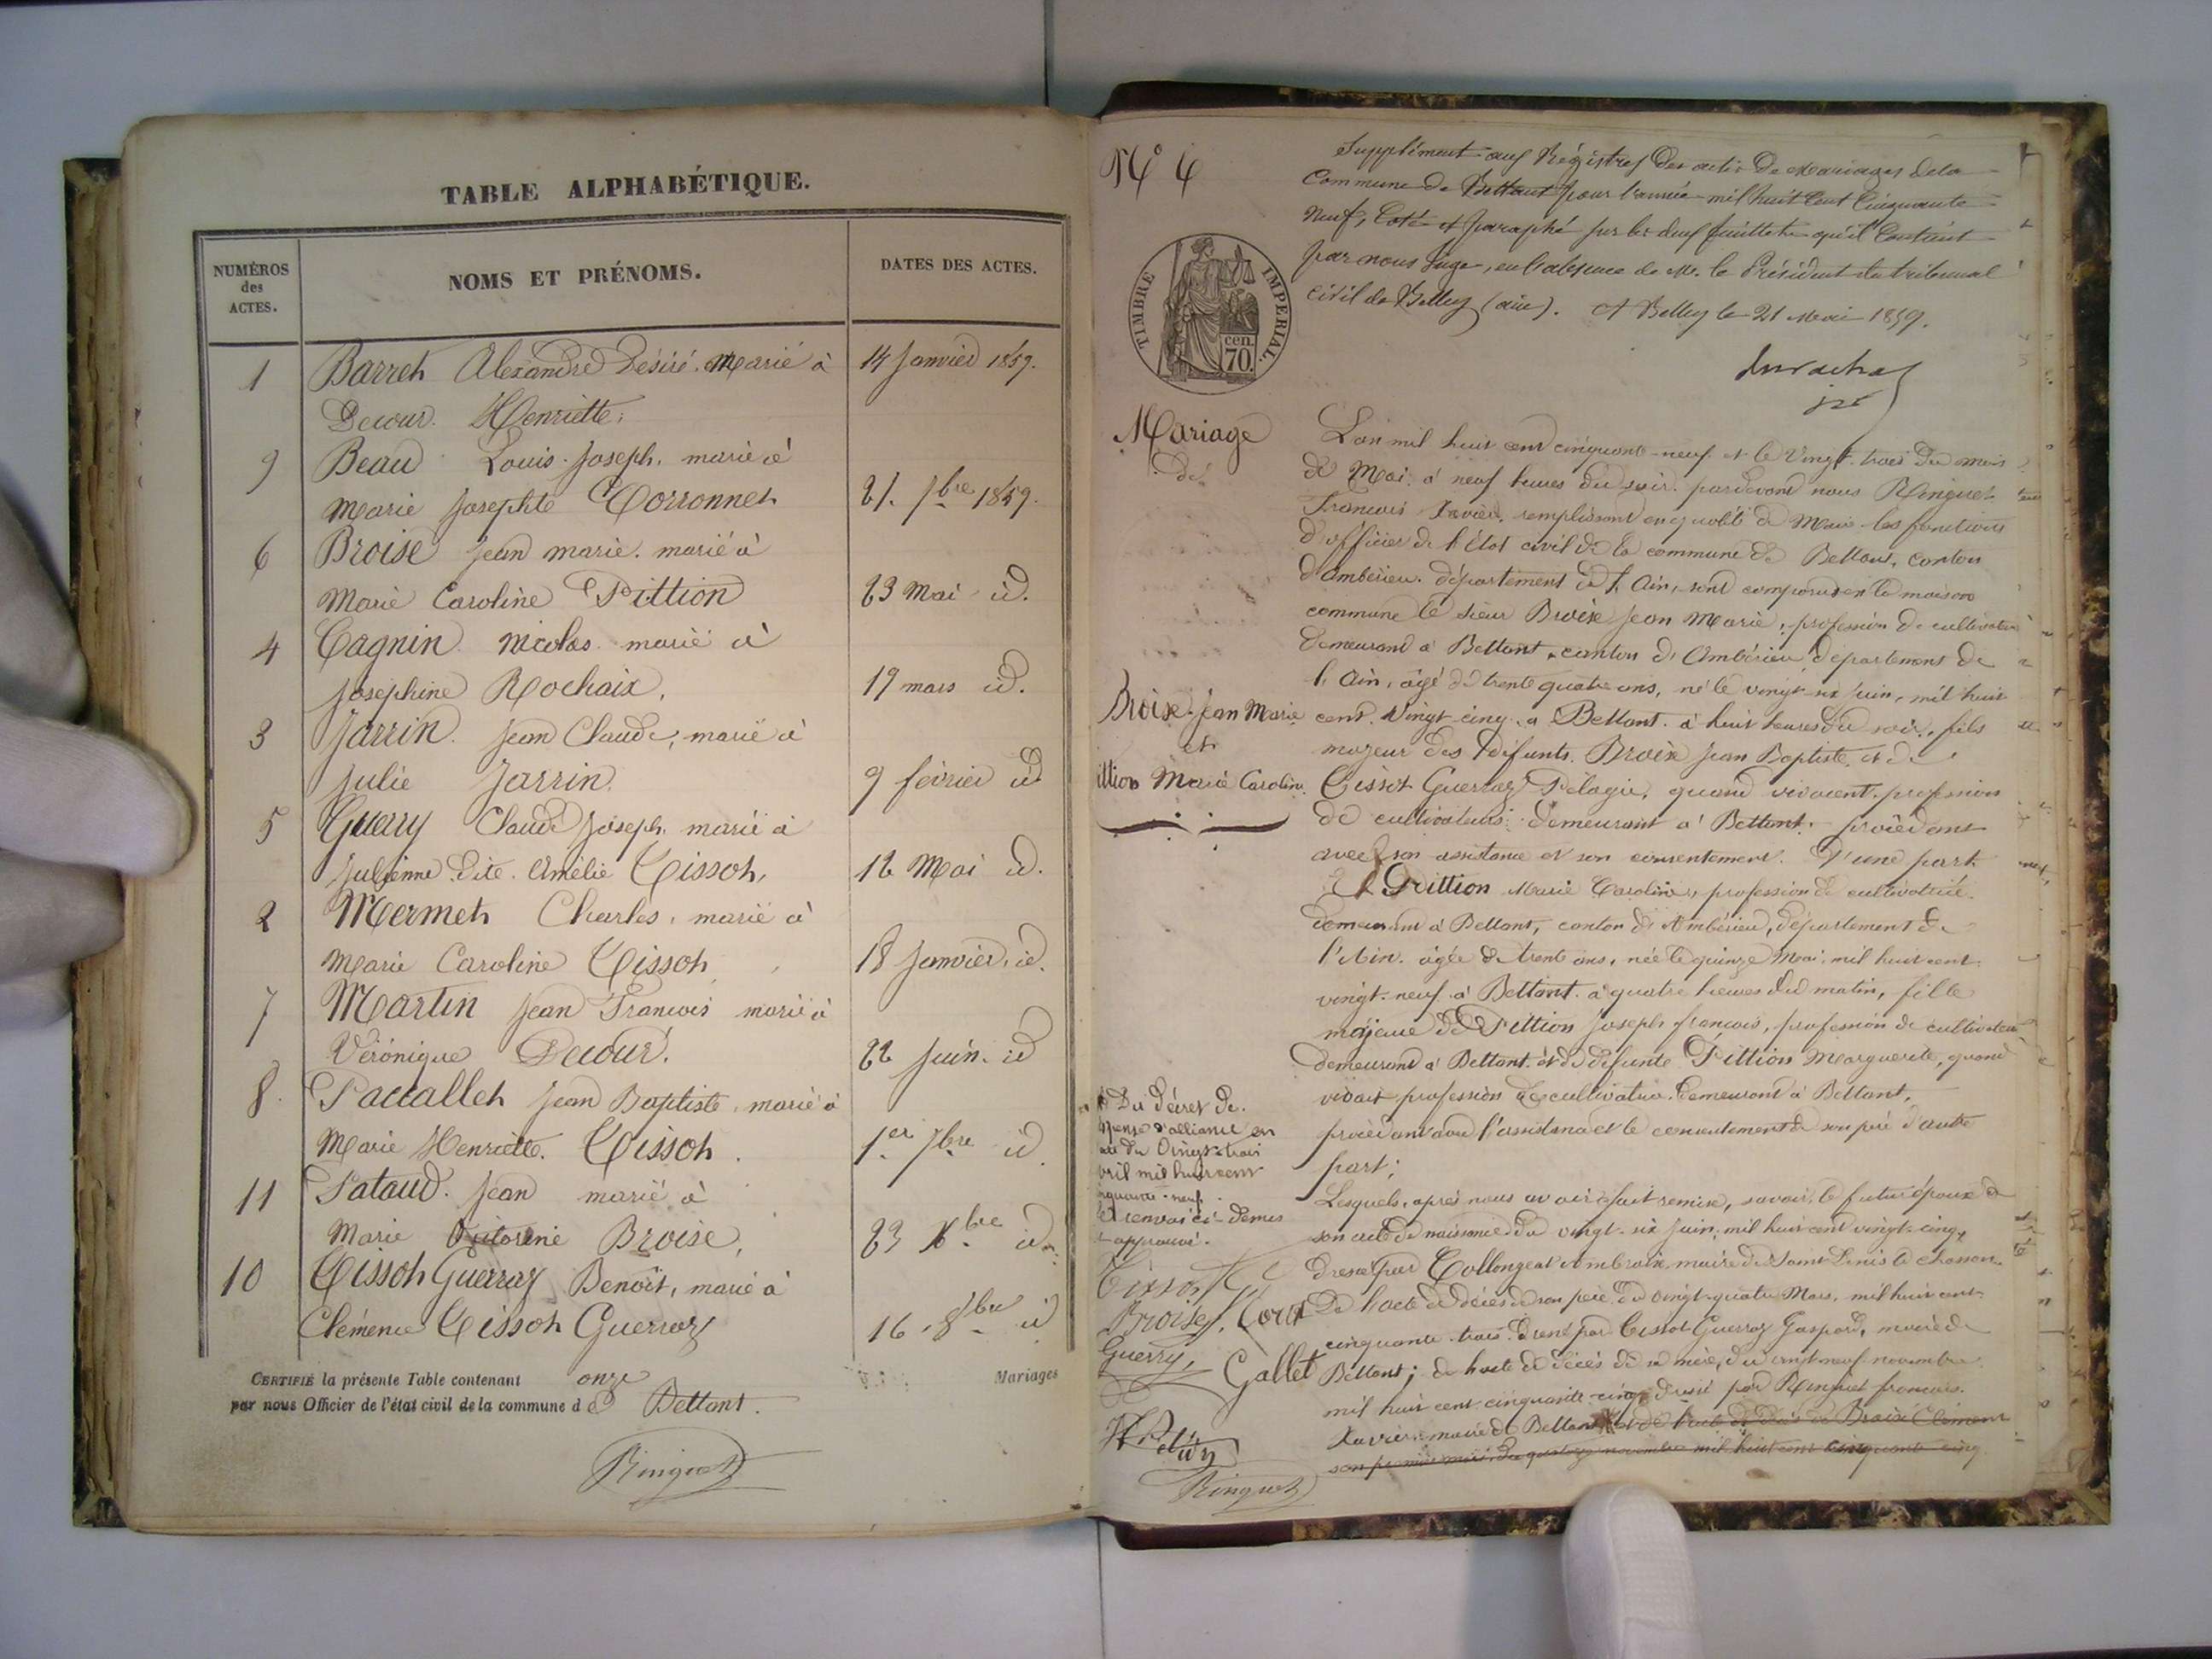 TABLE ALPHABÉTIQUE.
NUMÉROS des ACTES.
NOMS ET PRÉNOMS.
DATES DES ACTES.
1 Barret Alexandre Désiré. Marié à 14 Janvier 1859.
Decour. Henriette.
9 Beau Louis Joseph. marié à
Marie Josephte Corronnet 21. 7bre 1859.
6 Broise Jean marie. marié à
Marie Caroline Pittion 23 Mai id.
4 Cagnin Nicolas marié à
Joséphine Rochaix, 19 mars id.
3 Jarrin. Jean Claude, marié à
Julie Jarrin. 9 février id
5 Guerry Claude Joseph. marié à
Julienne dite Amélie Tissot, 12 Mai id.
2 Mermet Charles, marié à
Marie Caroline Tissot, 18 Janvier, id.
7 Martin Jean Francois marié à
Véronique Decour. 22 Juin. id
8. Paccallet Jean Baptiste, marié à
Marie Henriette. Tissot. 1er 7bre id
11 Pataud. Jean marié à
Marie Broise, 23 Xbre id.
10 Tissot Guerraz Benoît, marié à
Clémence Tissot Guerraz 16. 8bre id
CERTIFIÉ la présente Table contenant onze Mariages
par nous Officier de l'état civil de la commune d e Bettant.
Ringuet
N° 6
Supplément aux Régistres des actes de Mariages de la
Commune de Bettant pour l'année mil huit Cent Cinquante
Neuf, Coté et paraphé sur les deux feuillets qu'il Contient
par nous Juge, en l'absence de M. le Président du tribunal
Civil de Belley (ain). A Belley le 21 Mai 1859.
TIMBRE IMPERIAL.
cen.
70.
Mariage
de
Broise Jean Marie
et
ittion Marie Caroline.
L'an mil huit cent cinquante-neuf et le Vingt-trois du mois
de Mai. à neuf heures du soir. pardevant nous Ringuet
Francois Xavier. remplissant en qualité de Maire les fonctions
d'officier de l'état civil de la commune de Bettant, canton
d'Ambérieu. département de l'Ain, sont comparus en la maison
commune le sieur Broise Jean Marie, profession de cultivateur
demeurant à Bettant, canton d'Ambérieu, département de
l'Ain, âgé de trente quatre ans, né le vingt-six Juin, mil huit
cent Vingt cinq, à Bettant à huit heures du soir, fils
majeur des défunts. Broise Jean Baptiste et de
Tissot Guerraz Pélagie, quand vivaient profession
de cultivateurs demeurant à Bettant. procédant
avec son assistance et son consentement. d'une part.
Et Pittion Marie Caroline, profession de cultivatrice
demeurant à Bettant, canton d'Ambérieu, département de
l'Ain. âgée de trente ans, née le quinze Mai, mil huit cent
vingt-neuf à Bettant à quatre heures du matin, fille
majeure de Pittion Joseph francois, profession de cultivateur
demeurant à Bettant et de défunte Pittion Marguerite, quand
vivait profession de cultivatrice. demeurant à Bettant,
procédant avec l'assistance et le consentement de son père d'autre
part;
Lesquels, après nous avoir fait remise, savoir, le futur époux de
son acte de naissance du vingt-six Juin, mil huit cent vingt-cinq,
dressé par Collongeat Ambroise, maire de Saint Denis le Chosson.
De l'acte de décès de son père, du vingt-quatre Mars, mil huit cent
cinquante-trois dressé par Tissot Guerraz Gaspard, maire de
Bettant; de l'acte de décès de sa mère, du vingt neuf novembre
mil huit cent cinquante-cinq, dressé par Ringuet francois.
Xavier maire de Bettant et de l'acte de décès de Broise Clément
son premier mari, du quatorze novembre mil huit cent cinquante cinq
Du décret de
spense d'alliance en
ate du Vingt-trois
vril mil huit cent
nquante-neuf.
Le renvoi ci-dessus
approuvé.
Tissot G.
Broise J. Corat
Guerry,
Gallet
Ringuet